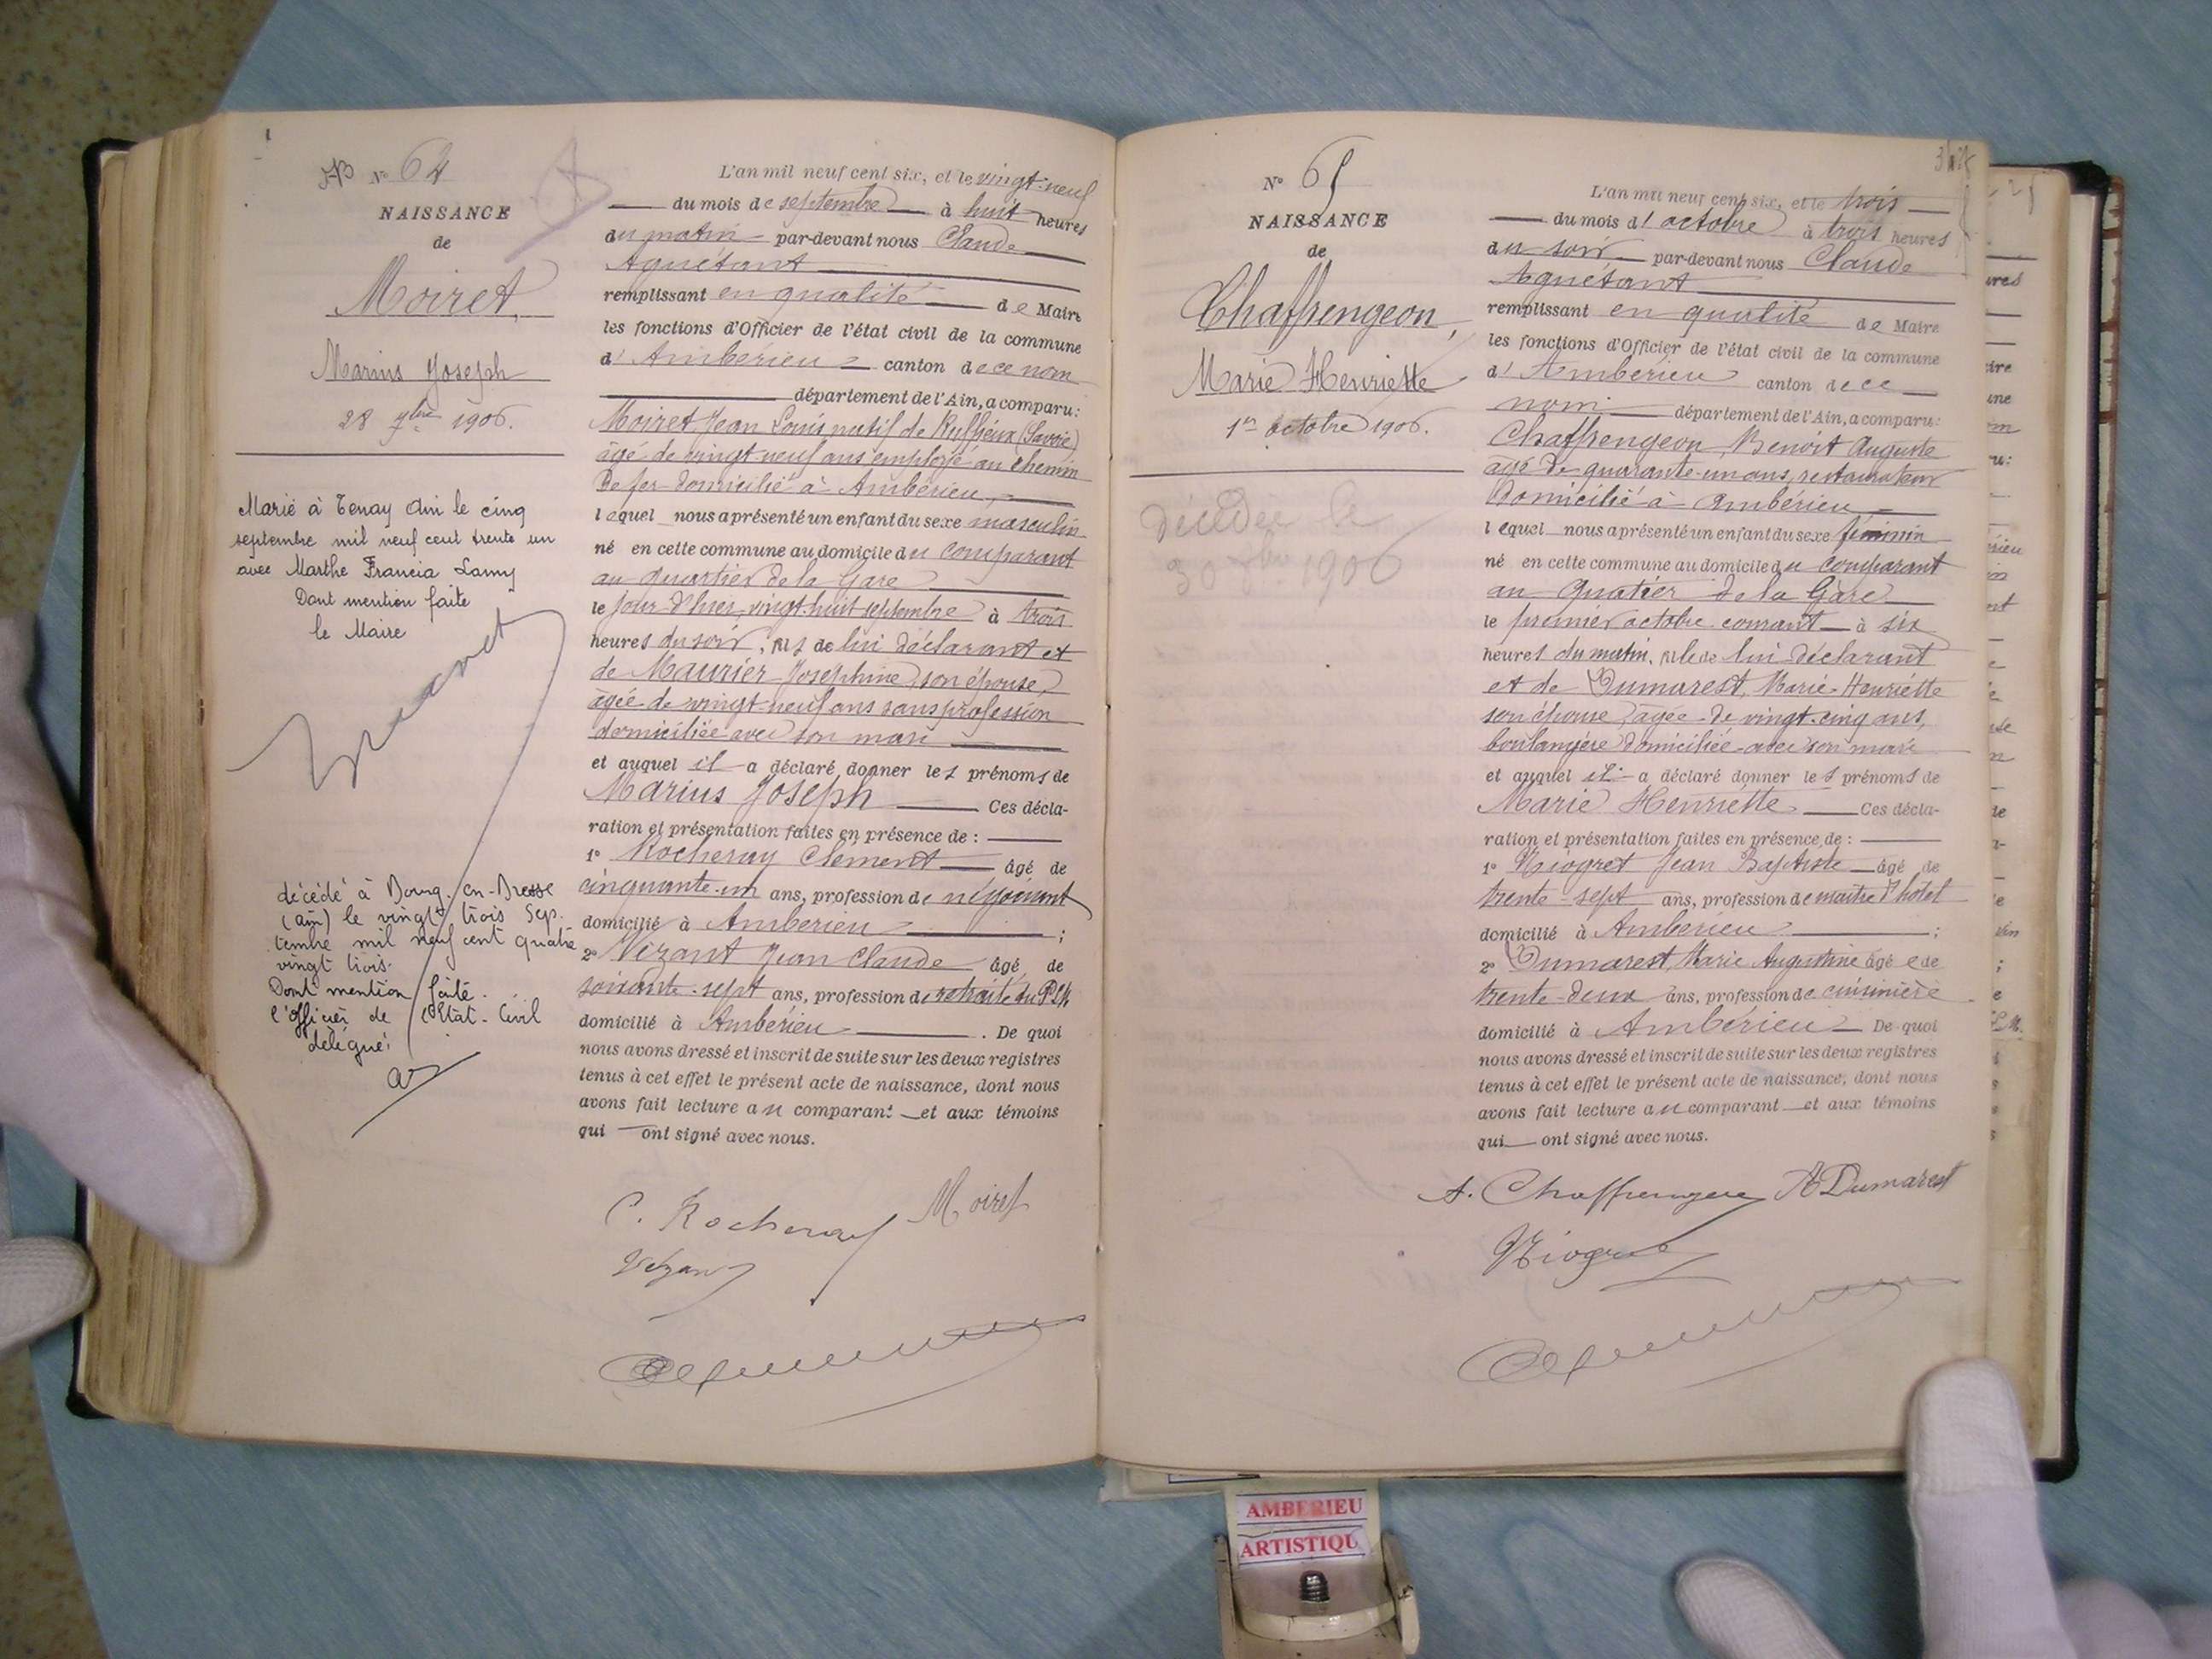 N° 64
NAISSANCE
de
Moiret,
Marius Joseph
28 7bre 1906.
Marié à Tenay Ain le cinq
septembre mil neuf cent trente un
avec Marthe Francia Lamy
Dont mention faite
le Maire
décédé à Bourg-en-Bresse
(ain) le vingt trois Sep-
tembre mil neuf cent quatre
vingt trois.
Dont mention faite.
l'Officier de l'Etat-Civil
délégué:
L'an mil neuf cent six, et le vingt-neuf
du mois de septembre à huit heures
du matin par-devant nous Claude
Aguétant
remplissant en qualité de Maire
les fonctions d'Officier de l'état civil de la commune
d'Ambérieu canton de ce nom
département de l'Ain, a comparu:
Moiret Jean Louis natif de (Savoie)
âgé de vingt-neuf ans employé au chemin
de fer domicilié à Ambérieu,
lequel nous a présenté un enfant du sexe masculin
né en cette commune au domicile du comparant
au quartier de la Gare
le jour d'hier, vingt-huit septembre à trois
heures du soir, fils de lui déclarant et
de Maurier Joséphine, son épouse,
âgée de vingt-neuf ans sans profession
domiciliée avec son mari
et auquel il a déclaré donner les prénoms de
Marius Joseph Ces décla-
ration et présentation faites en présence de :
1° Rocheray Clément âgé de
cinquante-un ans, profession de négociant
domicilié à Ambérieu ;
2° Vézant Jean Claude âgé de
soixante-sept ans, profession de retraité du PLM
domicilié à Ambérieu . De quoi
nous avons dressé et inscrit de suite sur les deux registres
tenus à cet effet le présent acte de naissance, dont nous
avons fait lecture au comparant et aux témoins
qui ont signé avec nous.
C. Rocheray Moiret
Vézant
N° 65
NAISSANCE
de
Chaffrengeon,
Marie Henriette
1er octobre 1906.
Décédée le
30 1906
L'an mil neuf cent six, et le trois
du mois d'octobre à trois heures
du soir par-devant nous Claude
Aguétant
remplissant en qualité de Maire
les fonctions d'Officier de l'état civil de la commune
d'Ambérieu canton de ce
nom département de l'Ain, a comparu:
Chaffrengeon Benoit Auguste
âgé de quarante-un ans, restaurateur
domicilié à Ambérieu,
lequel nous a présenté un enfant du sexe féminin
né en cette commune au domicile du comparant
au Quatier de la Gare
le premier octobre courant à six
heures du matin, fille de lui déclarant
et de Dumarest, Marie-Henriette
son épouse, âgée de vingt-cinq ans,
boulangère domiciliée avec son mari
et auquel il a déclaré donner les prénoms de
Marie Henriette Ces décla-
ration et présentation faites en présence de :
1° Niogret Jean Baptiste âgé de
trente-sept ans, profession de maître d'hôtel
domicilié à Ambérieu ;
2° Dumarest, Marie Augustine âgée de
trente-deux ans, profession de cuisinière
domicilié à Ambérieu De quoi
nous avons dressé et inscrit de suite sur les deux registres
tenus à cet effet le présent acte de naissance, dont nous
avons fait lecture au comparant et aux témoins
qui ont signé avec nous.
A. Chaffrengeon A Dumarest
Niogret
AMBERIEU
ARTISTIQU